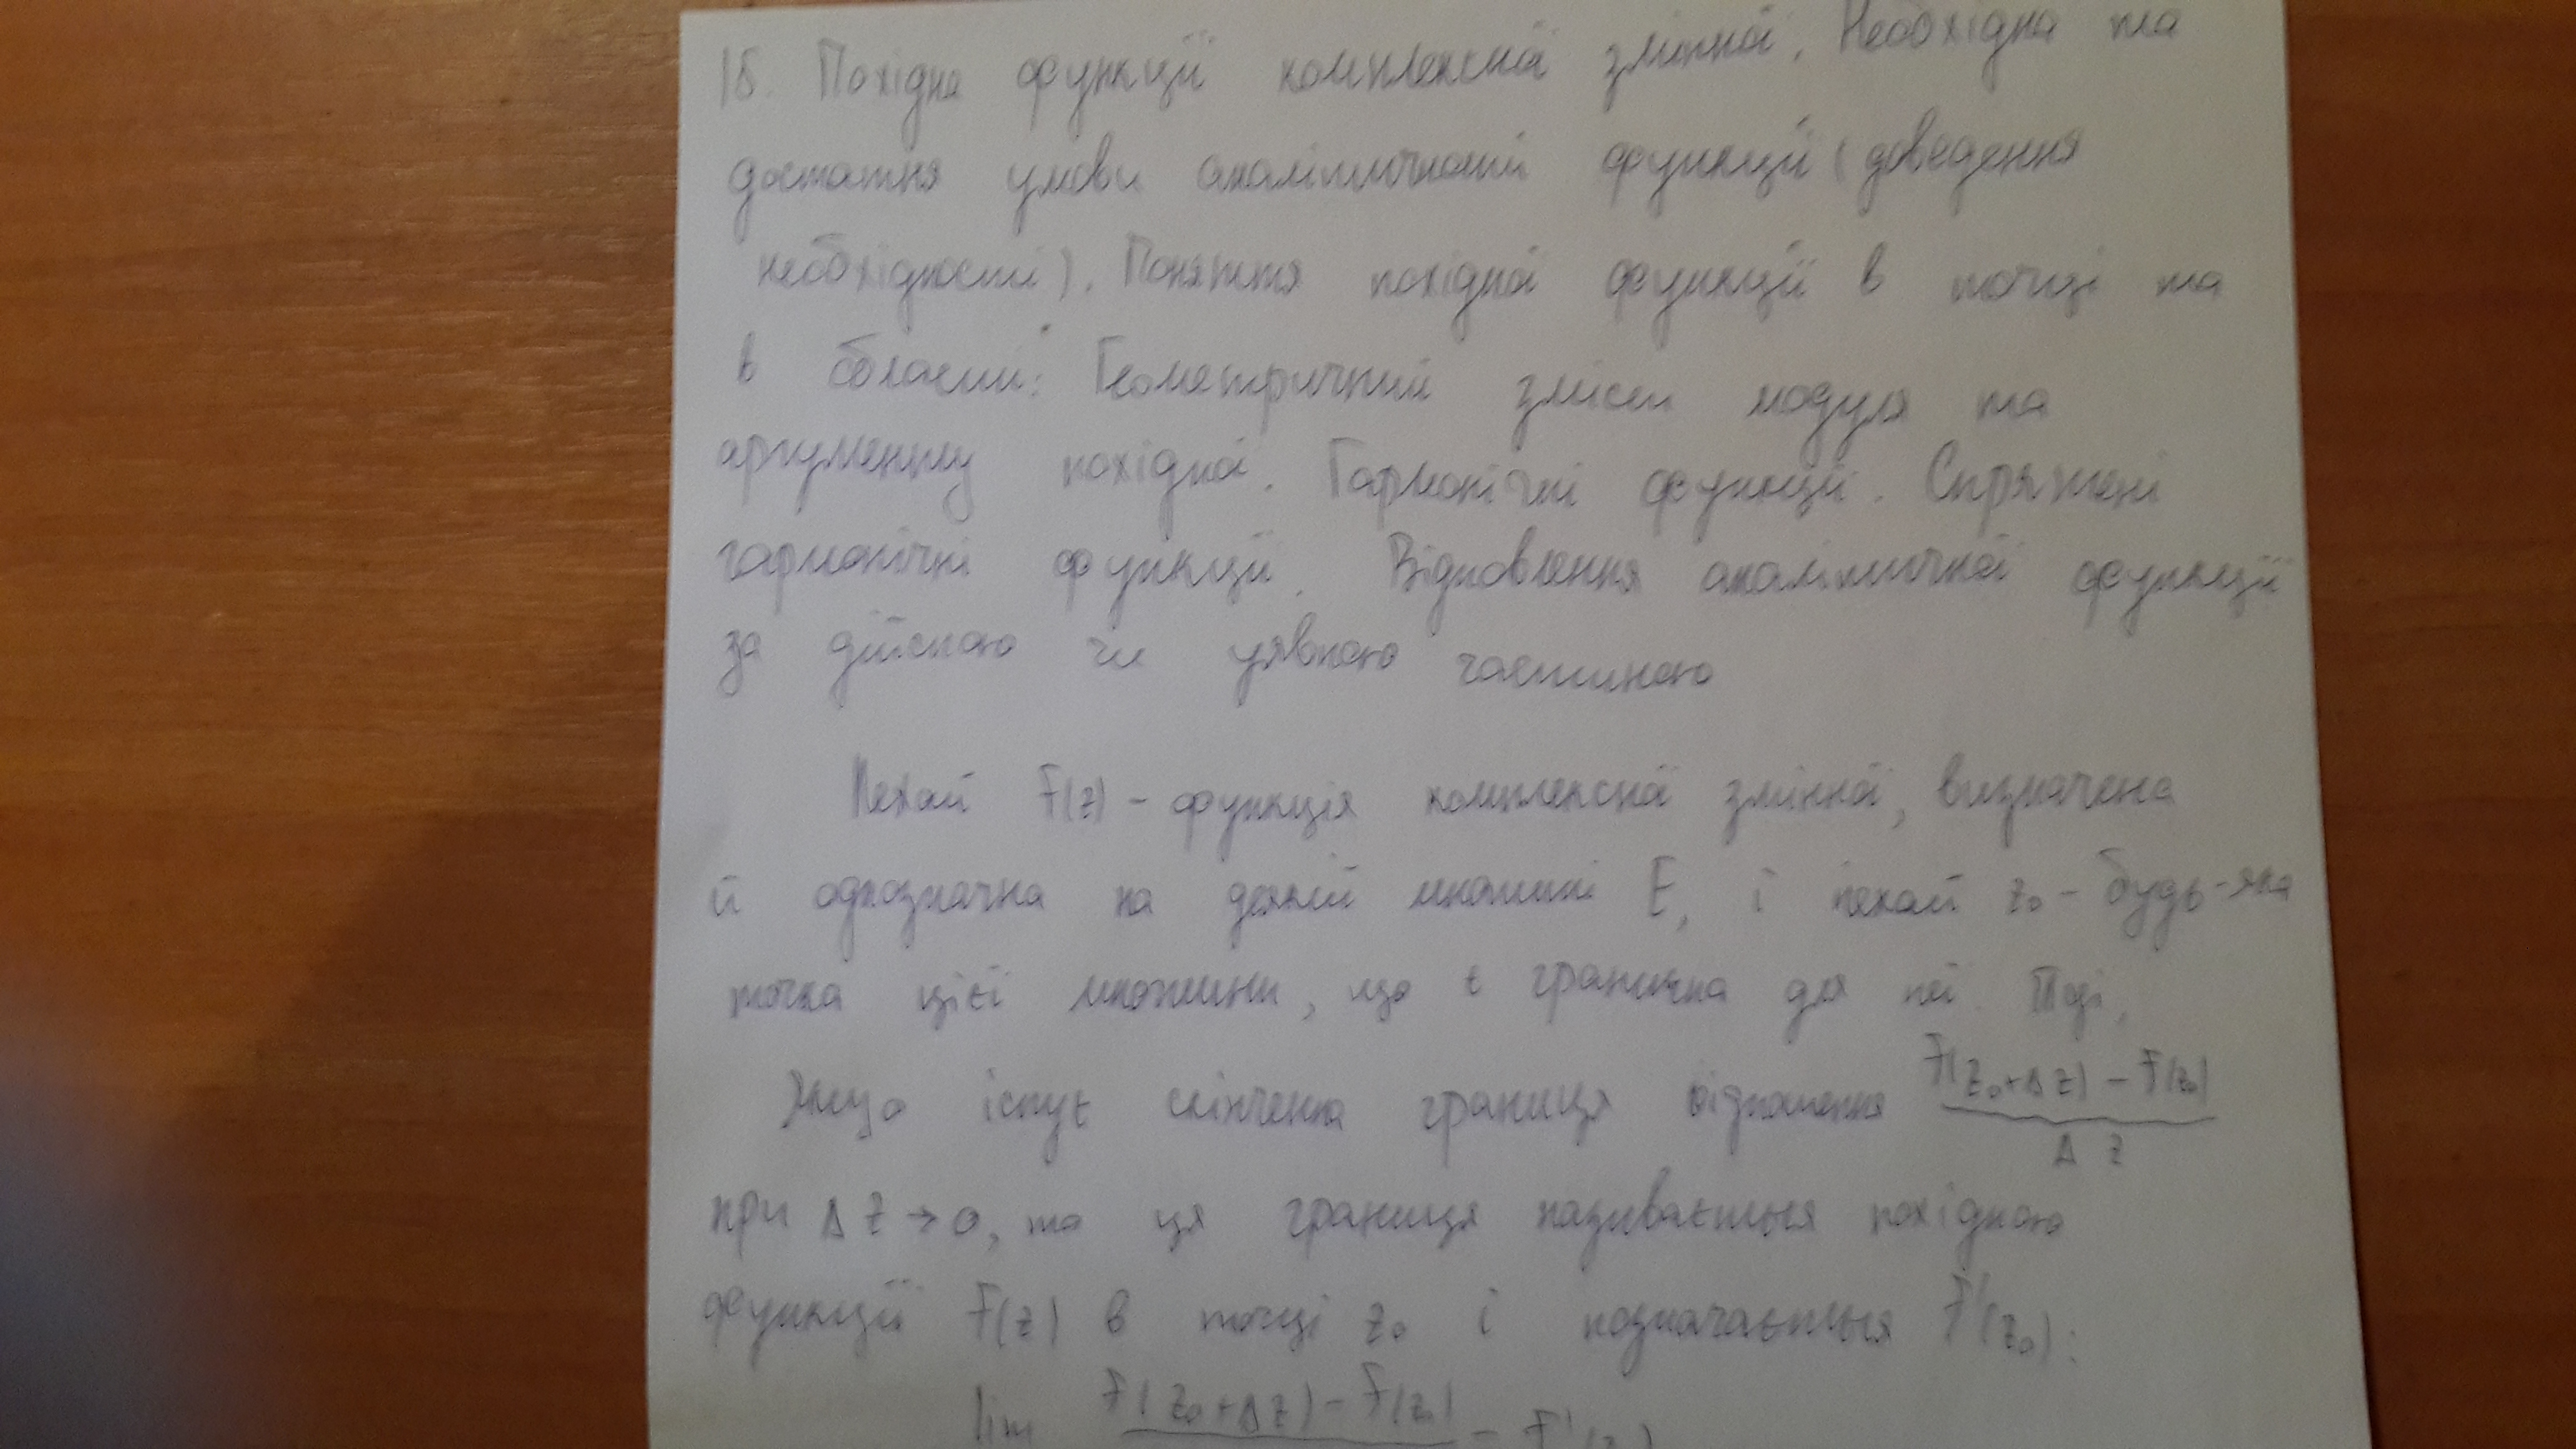 15. Похідна функції комплексної змінної. Необхідна та
достатня умови аналітичності функції (доведення
необхідності). Поняття похідної функції в точці та
в області. Геометричний зміст модуля та
аргументу похідної. Гармонічні функції. Спряжені
гармонічні функції. Відновлення аналітичної функції
за дійсною чи уявною частиною
Нехай F(z) - функція комплексної змінної, визначена
й однозначна на деякій множині E, і нехай z₀ - будь-яка
точка цієї множини, що є гранична для неї. Тоді,
Якщо існує скінченна границя відношення F(z₀+Δz) - F(z₀) / Δz
при Δz → 0, то ця границя називається похідною
функції F(z) в точці z₀ і позначається F'(z₀):
lim F(z₀+Δz) - F(z₀) = F'(z₀)